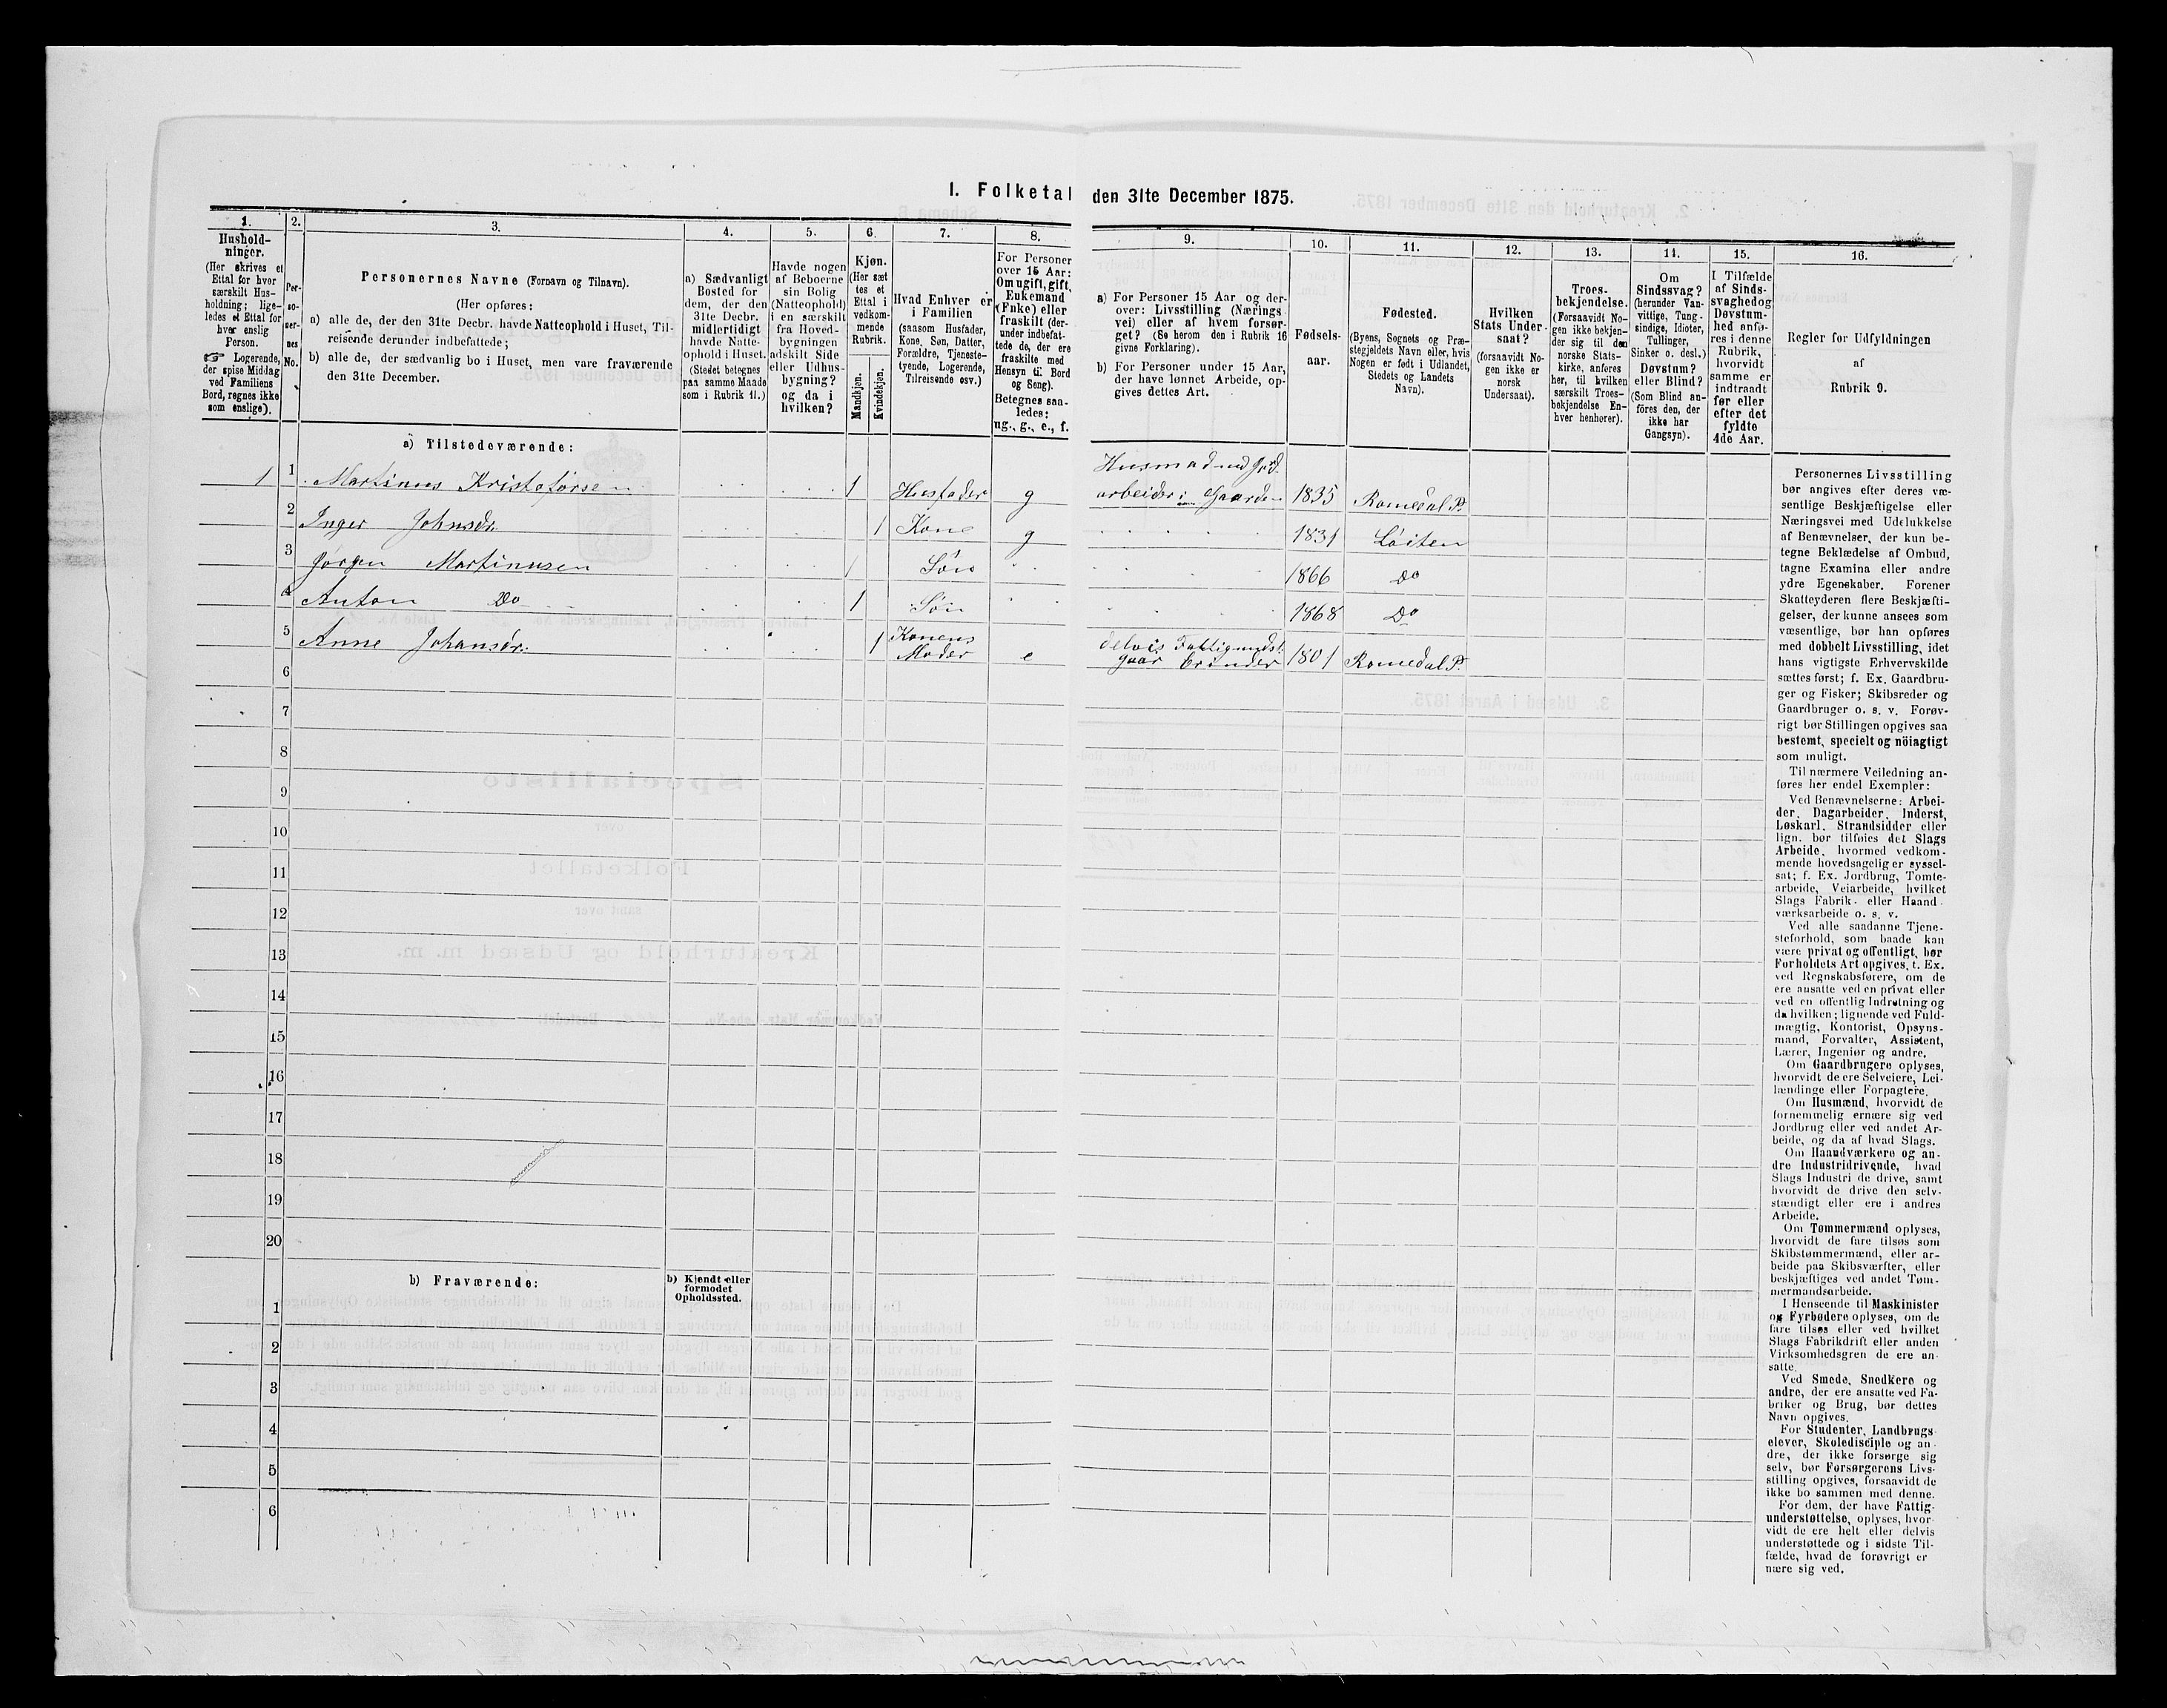 I. Folketal den 31te December 1875.
1.
Hushold-
ninger.
(Her skrives et
Ettal for hver
særskilt Hus-
holdning; lige-
ledes et Ettal for
hver enslig
Person.
☞ Logerende,
der spise Middag
ved Familiens
Bord, regnes ikke
som enslige).
2.
Per-
so-
ner-
nes
No.
3.
Personernes Navne (Fornavn og Tilnavn).
(Her opføres:
a) alle de, der den 31te Decbr. havde Natteophold i Huset, Til-
reisende derunder indbefattede;
b) alle de, der sædvanlig bo i Huset, men vare fraværende
den 31te December.
4.
a) Sædvanligt
Bosted for
dem, der den
31te Decbr.
midlertidigt
havde Natte-
ophold i Huset.
(Stedet betegnes
paa samme Maade
som i Rubrik 11.)
5.
Havde nogen
af Beboerne
sin Bolig
(Natteophold)
i en særskilt
fra Hoved-
bygningen
adskilt Side
eller Udhus-
bygning?
og da i
hvilken?
6.
Kjøn.
(Her sæt
tes et
Ettal i
vedkom-
mende
Rubrik.
Mandkjøn.
Kvindekjøn.
7.
Hvad Enhver er
i Familien
(saasom Husfader,
Kone, Søn, Datter,
Forældre, Tjeneste-
tyende, Logerende,
Tilreisende osv.)
8.
For Personer
over 15 Aar:
Om ugift, gift,
Enkemand
(Enke) eller
fraskilt (der-
under indbefat-
tede de, der ere
fraskilte med
Hensyn til Bord
og Seng).
Betegnes saa-
ledes:
ug., g., e., f.
9.
a) For Personer 15 Aar og der-
over: Livsstilling (Nærings
vei) eller af hvem forsør-
get? (Se herom den i Rubrik 16
givne Forklaring).
b) For Personer under 15 Aar,
der have lønnet Arbeide, op-
gives dettes Art.
10.
Fødsels-
aar.
11.
Fødested.
(Byens, Sognets og Præ-
stegjeldets Navn eller, hvis
Nogen er født i Udlandet,
Stedets og Landets
Navn).
12.
Hvilken
Stats Under-
saat?
(forsaavidt No-
gen ikke er
norsk
Undersaat).
13.
Troes-
bekjendelse.
(Forsaavidt No-
gen ikke bekjen-
der sig til den
norske Stats-
kirke, anføres
her, til hvilken
særskilt Troes-
bekjendelse En-
hver henhører).
14.
Om
Sindssvag?
(herunder Van-
vittige, Tung-
sindige, Idioter,
Tullinger,
Sinker o. desl.)
Døvstum?
eller Blind?
(Som Blind an-
föres den, der
ikke har
Gangsyn).
15.
I Tilfælde
af Sinds-
svaghed og
Døvstum-
hed anfø-
res i denne
Rubrik,
hvorvidt
samme er
indtraadt
før eller
efter det
fyldte
4de Aar.
16.
Regler for Udfyldningen
af
Rubrik 9.
a) Tilstedeværende:
1 1 Martinus Kristofersen 1 Husfader g Husmand ud Jord arbeider i Gaarden 1835 Romedal P.
2 Inger Johnsdr. 1 Kone g 1831 Löiten
3 Jørgen Martinusen 1 Sön 1866 Do
4 Anton Do 1 Sön 1868 Do
5 Anne Johansdr. 1 Konens Moder e delvis Fattigundst. gaar Erinder 1801 Romedal P.
6
7
8
9
10
11
12
13
14
15
16
17
18
19
20
b) Fraværende:
b) Kjendt eller
formodet
Opholdssted.
1
2
3
4
5
6
Personernes Livsstilling
bør angives efter deres væ-
sentlige Beskjæftigelse eller
Næringsvei med Udelukkelse
af Benævnelser, der kun be-
tegne Beklædelse af Ombud,
tagne Examina eller andre
ydre Egenskaber. Forener
Skatteyderen flere Beskjæfti-
gelser, der kunne ansees som
væsentlige, bør han opføres
med dobbelt Livsstilling, idet
hans vigtigste Erhvervskilde
sættes først; f. Ex. Gaardbru-
ger og Fisker; Skibsreder og
Gaardbruger o. s. v. Forøv-
rigt bør Stillingen opgives saa
bestemt, specielt og nöiagtigt
som muligt.
Til nærmere Veiledning an-
føres her endel Exempler:
Ved Benævnelserne: Arbei-
der, Dagarbeider, Inderst,
Løskarl, Strandsidder eller
lign. bør tilføies det Slags
Arbeide, hvormed vedkom-
mende hovedsagelig er syssel-
sat; f. Ex. Jordbrug, Tomte-
arbeide, Veiarbeide, hvilket
Slags Fabrik- eller Haand-
værksarbeide o. s. v.
Ved alle saadanne Tjene-
steforhold, som baade kan
være privat og offentligt, bør
Forholdets Art opgives, t. Ex.
ved Regnskabsførere, om de
ere ansatte ved en privat eller
ved en offentlig Indretning og
da hvilken; lignende ved Fuld-
mægtig, Kontorist, Opsyns-
mand, Forvalter, Assistent,
Lærer, Ingeniør og andre.
Om Gaardbrugere oplyses,
hvorvidt de ere Selveiere, Lei-
lændinge eller Forpagtere.
Om Husmænd, hvorvidt de
fornemmelig ernære sig ved
Jordbrug eller ved andet Ar-
beide, og da af hvad Slags.
Om Haandværkere og an-
dre Industridrivende, hvad
Slags Industri de drive, samt
hvorvidt de drive den selv-
stændigt eller ere i andres
Arbeide.
Om Tømmermænd oplyses,
hvorvidt de fare tilsøs som
Skibstømmermænd, eller ar-
beide paa Skibsværfter, eller
beskjæftiges ved andet Tøm-
mermandsarbeide.
I Henseende til Maskinister
og Fyrbødere oplyses, om de
fare tilsøs eller ved hvilket
Slags Fabrikdrift eller anden
Virksomhedsgren de ere an-
satte.
Ved Smede, Snedkere og
andre, der ere ansatte ved Fa-
briker og Brug, bør dettes
Navn opgives.
For Studenter, Landbrugs-
elever, Skoledisciple og an-
dre, der ikke forsørge sig
selv, bør Forsørgerens Livs-
stilling opgives, forsaavidt de
ikke bo sammen med denne.
For dem, der have Fattig-
understøttelse, oplyses, hvor-
vidt de ere helt eller delvis
understøttede og i sidste Til-
fælde, hvad de forøvrigt er
nære sig ved.